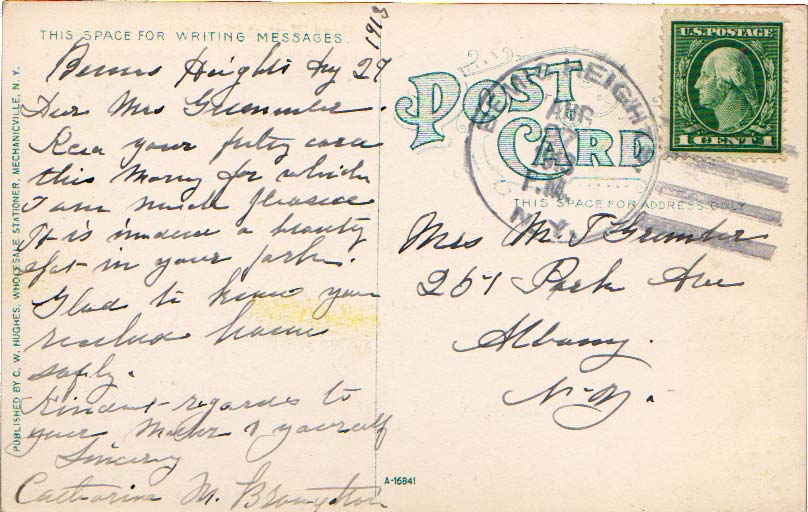 1913
THIS SPACE FOR WRITING MESSAGES.
Bemis Heights Aug 27
Dear Mrs Grummler.
Recd your pretty card
this Morng for which
I am much pleased
It is indeed a beauty
spot in your park.
Glad to know you
reached home
safly.
Kindest regardes to
your Mother & yourself
Sincery
Catharine M. Broughton
PUBLISHED BY C. W. HUGHES, WHOLESALE STATIONER, MECHANICVILLE, N. Y.
POST
CARD
BEMIS HEIGHTS
AUG
27
P.M.
N.Y.
U.S. POSTAGE
1 CENT 1
THIS SPACE FOR ADDRESS ONLY
Mrs M. J Grumler
251 Park Ave
Albany.
N-Y.
A-16841